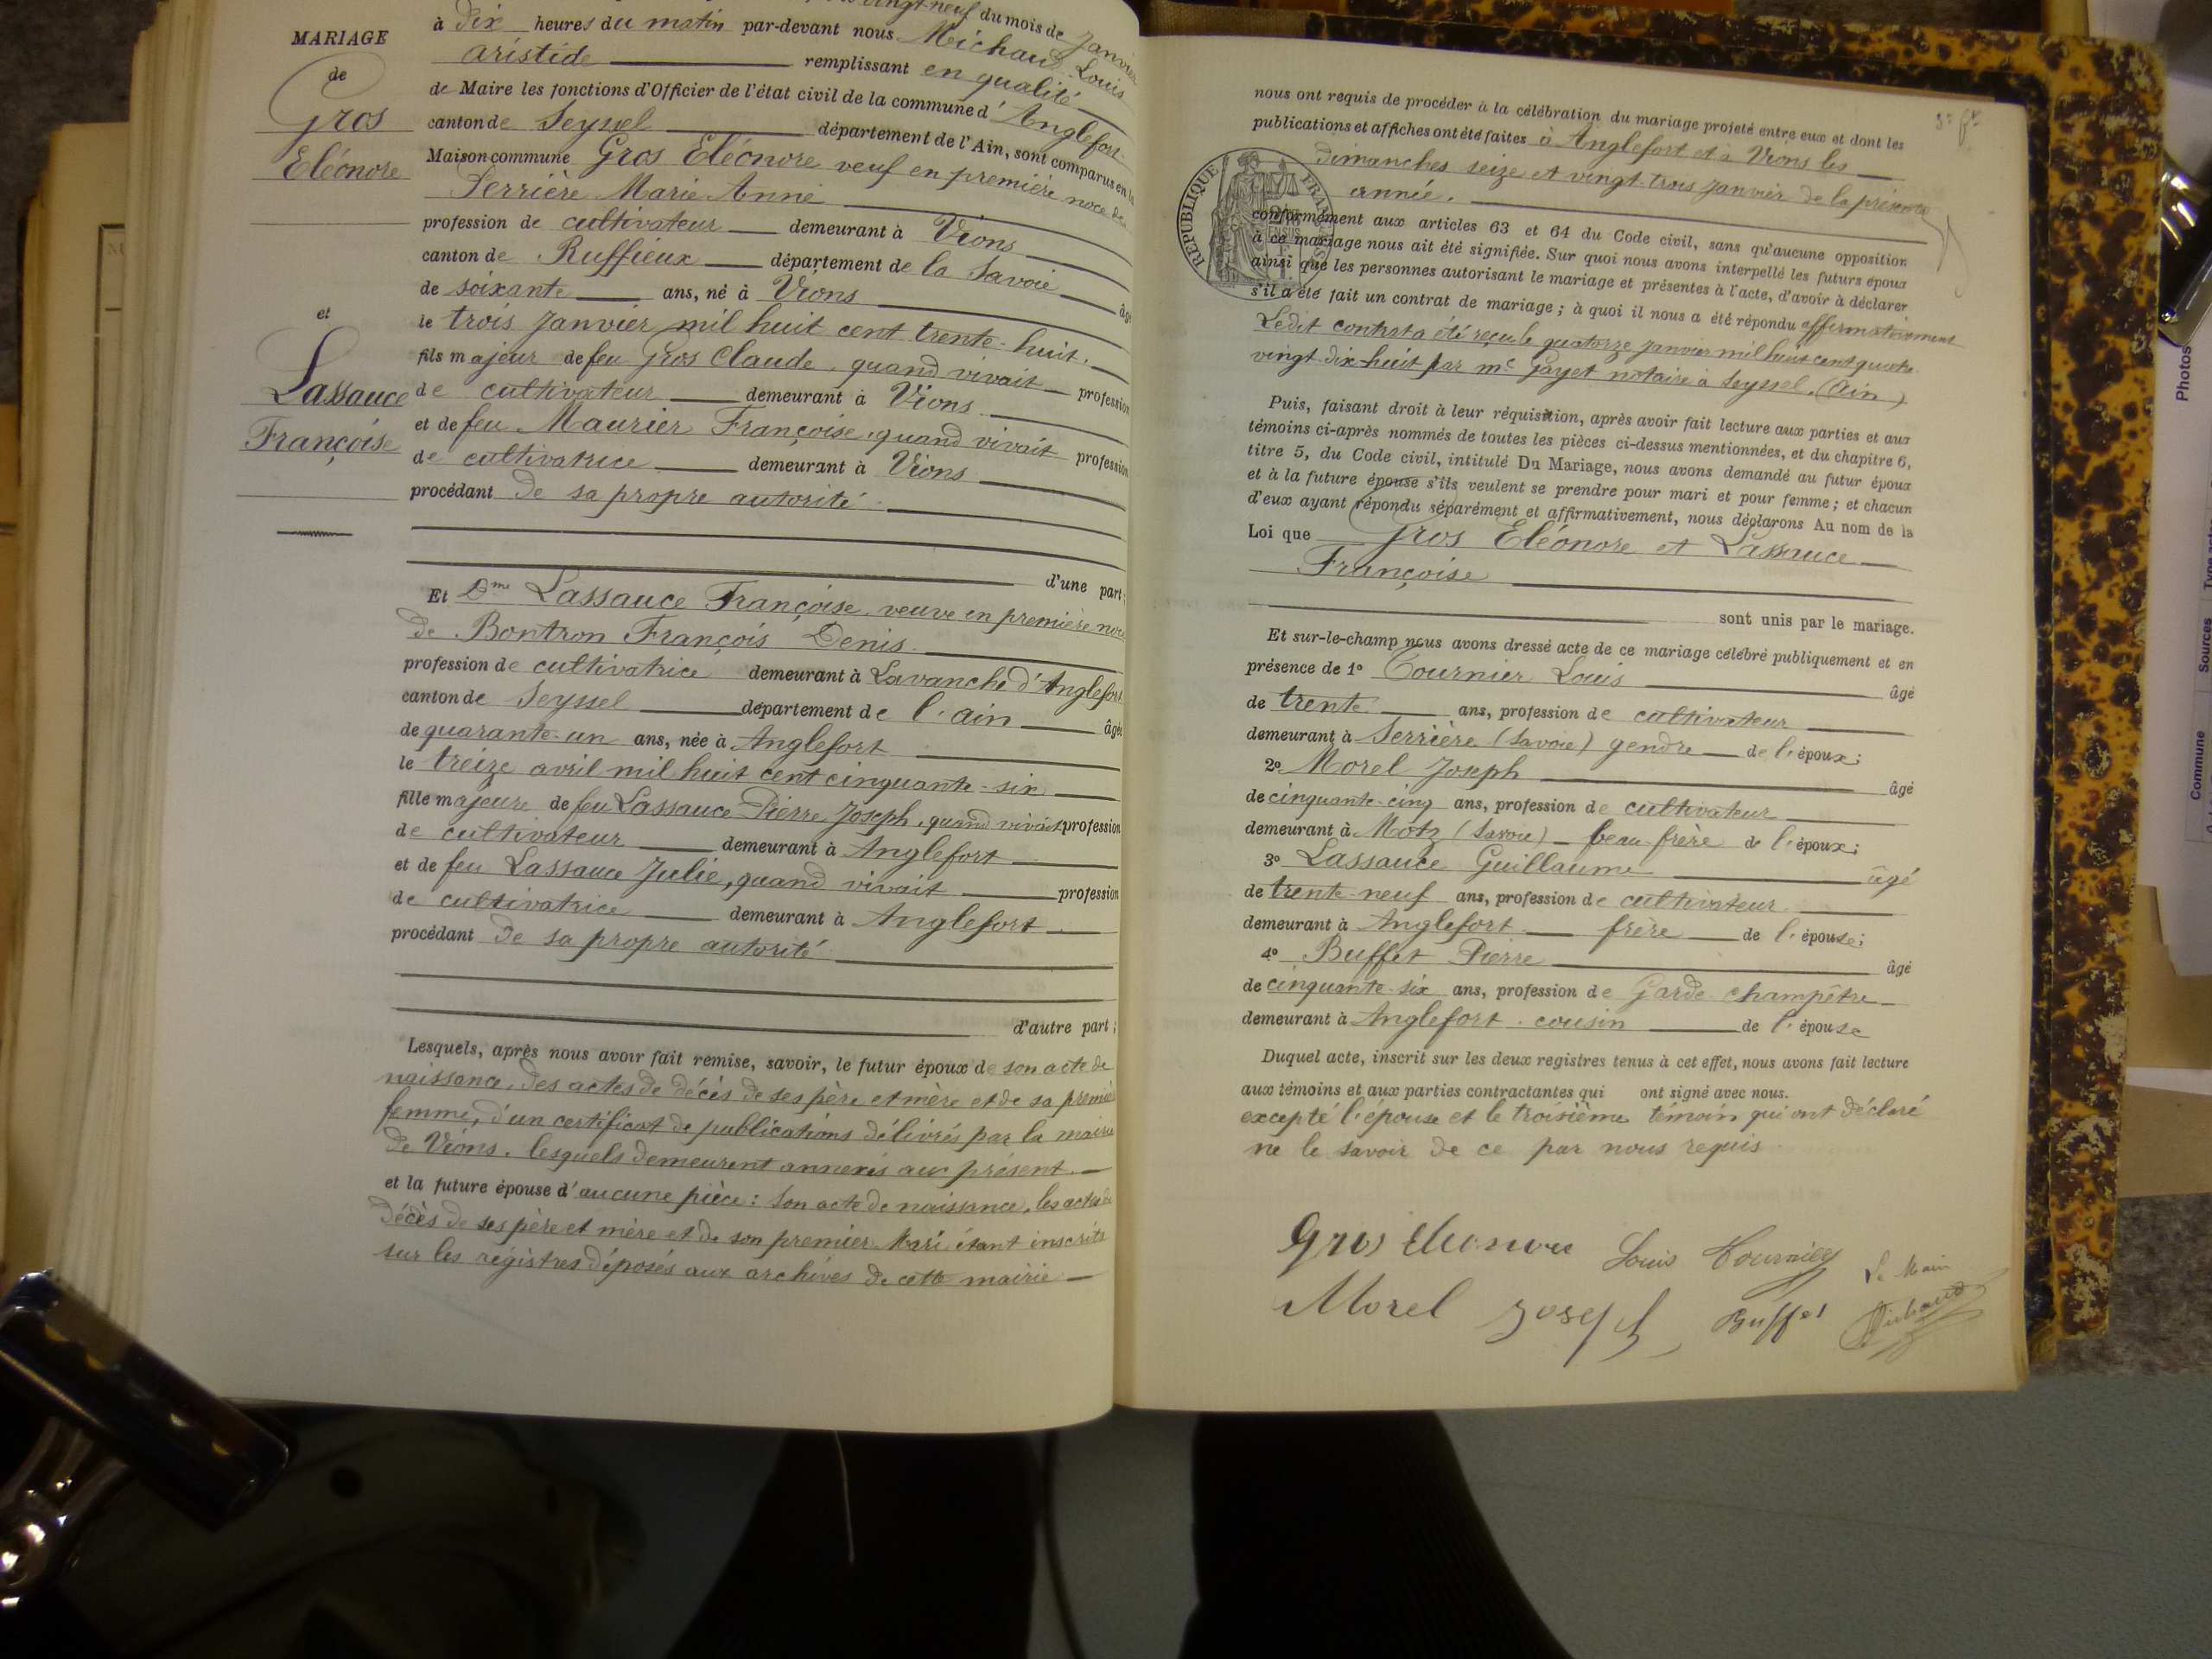 MARIAGE
de
Gros
Eléonore
et
Lassauce
Françoise
vingt-neuf du mois de Janvier
à dix heures du matin par-devant nous Michaud Louis
aristide remplissant en qualité
de Maire les fonctions d'Officier de l'état civil de la commune d'Anglefort
canton de Seyssel département de l'Ain, sont comparus en la
Maison commune Gros Eléonore veuf en première noce de
Perrière Marie Anne
profession de cultivateur demeurant à Vions
canton de Ruffieux département de la Savoie âgé
de soixante ans, né à Vions
le trois Janvier mil huit cent trente-huit.
fils majeur de feu Gros Claude, quand vivait profession
de cultivateur demeurant à Vions
et de feu Maurier Françoise, quand vivait profession
de cultivatrice demeurant à Vions
procédant de sa propre autorité
d'une part;
Et Dme Lassauce Françoise, veuve en première noce
de Bontron François Denis
profession de cultivatrice demeurant à Lavanche d'Anglefort
canton de Seyssel département de l'ain âgée
de quarante-un ans, née à Anglefort
le treize avril mil huit cent cinquante-six
fille majeure de feu Lassauce Pierre Joseph, quand vivait profession
de cultivateur demeurant à Anglefort
et de feu Lassauce Julie, quand vivait profession
de cultivatrice demeurant à Anglefort
procédant de sa propre autorité
d'autre part;
Lesquels, après nous avoir fait remise, savoir, le futur époux de son acte de
naissance, des actes de décès de ses père et mère et de sa première
femme, d'un certificat de publications délivrés par la mairie
de Vions, lesquels demeurent annexés au présent.
et la future épouse d'aucune pièce: son acte de naissance, les actes de
décès de ses père et mère et de son premier Mari étant inscrits
sur les régistres déposés aux archives de cette mairie
nous ont requis de procéder à la célébration du mariage projeté entre eux et dont les
publications et affiches ont été faites à Anglefort et à Vions les
dimanches seize et vingt-trois janvier de la présente
année.
REPUBLIQUE FRANÇAISE
conformément aux articles 63 et 64 du Code civil, sans qu'aucune opposition
à ce mariage nous ait été signifiée. Sur quoi nous avons interpellé les futurs époux
ainsi que les personnes autorisant le mariage et présentes à l'acte, d'avoir à déclarer
s'il a été fait un contrat de mariage; à quoi il nous a été répondu affirmativement
Ledit contrat a été reçu le quatorze janvier mil huit cent quatre
vingt-dix-huit par me Gayet notaire à Seyssel, (Ain)
Puis, faisant droit à leur réquisition, après avoir fait lecture aux parties et aux
témoins ci-après nommés de toutes les pièces ci-dessus mentionnées, et du chapitre 6,
titre 5, du Code civil, intitulé Du Mariage, nous avons demandé au futur époux
et à la future épouse s'ils veulent se prendre pour mari et pour femme; et chacun
d'eux ayant répondu séparément et affirmativement, nous déclarons Au nom de la
Loi que Gros Eléonore et Lassauce
Françoise
sont unis par le mariage.
Et sur-le-champ nous avons dressé acte de ce mariage célébré publiquement et en
présence de 1º Tournier Louis âgé
de trente ans, profession de cultivateur
demeurant à Serrière (Savoie) gendre de l'époux;
2º Morel Joseph âgé
de cinquante-cinq ans, profession de cultivateur
demeurant à Motz (Savoie) beau-frère de l'époux;
3º Lassauce Guillaume âgé
de trente-neuf ans, profession de cultivateur
demeurant à Anglefort frère de l'épouse;
4º Buffet Pierre âgé
de cinquante-six ans, profession de Garde champêtre
demeurant à Anglefort. cousin de l'épouse
Duquel acte, inscrit sur les deux registres tenus à cet effet, nous avons fait lecture
aux témoins et aux parties contractantes qui ont signé avec nous.
excepté l'épouse et le troisième témoin qui ont déclaré
ne le savoir de ce par nous requis
Gros Eleonore Louis Tournier Le Maire
Morel Joseph Buffet Michaud
Photos
Commune Sources Type acte